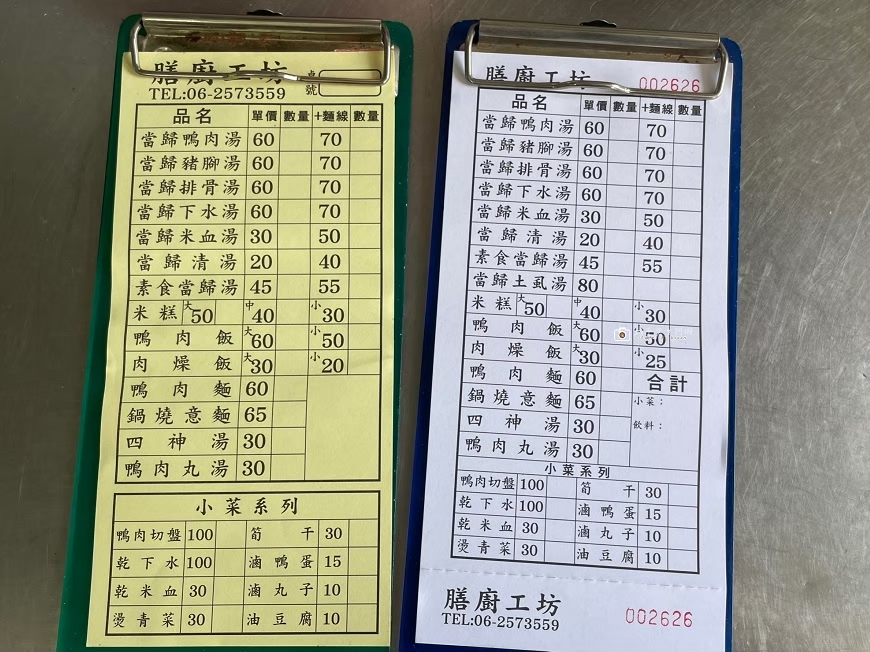 膳廚工坊
桌號
TEL:06-2573559
品名 單價 數量 +麵線 數量
當歸鴨肉湯 60 70
當歸豬腳湯 60 70
當歸排骨湯 60 70
當歸下水湯 60 70
當歸米血湯 30 50
當歸清湯 20 40
素食當歸湯 45 55
米糕 大50 中40 小30
鴨肉飯 大60 小50
肉燥飯 大30 小20
鴨肉麵 60
鍋燒意麵 65
四神湯 30
鴨肉丸湯 30
小菜系列
鴨肉切盤 100 筍干 30
乾下水 100 滷鴨蛋 15
乾米血 30 滷丸子 10
燙青菜 30 油豆腐 10
膳廚工坊 002626
品名 單價 數量 +麵線 數量
當歸鴨肉湯 60 70
當歸豬腳湯 60 70
當歸排骨湯 60 70
當歸下水湯 60 70
當歸米血湯 30 50
當歸清湯 20 40
素食當歸湯 45 55
當歸土虱湯 80
米糕 大50 中40 小30
鴨肉飯 大60 小50
肉燥飯 大30 小25
鴨肉麵 60 合計
鍋燒意麵 65 小菜：
四神湯 30 飲料：
鴨肉丸湯 30
小菜系列
鴨肉切盤 100 筍干 30
乾下水 100 滷鴨蛋 15
乾米血 30 滷丸子 10
燙青菜 30 油豆腐 10
膳廚工坊
TEL:06-2573559 002626